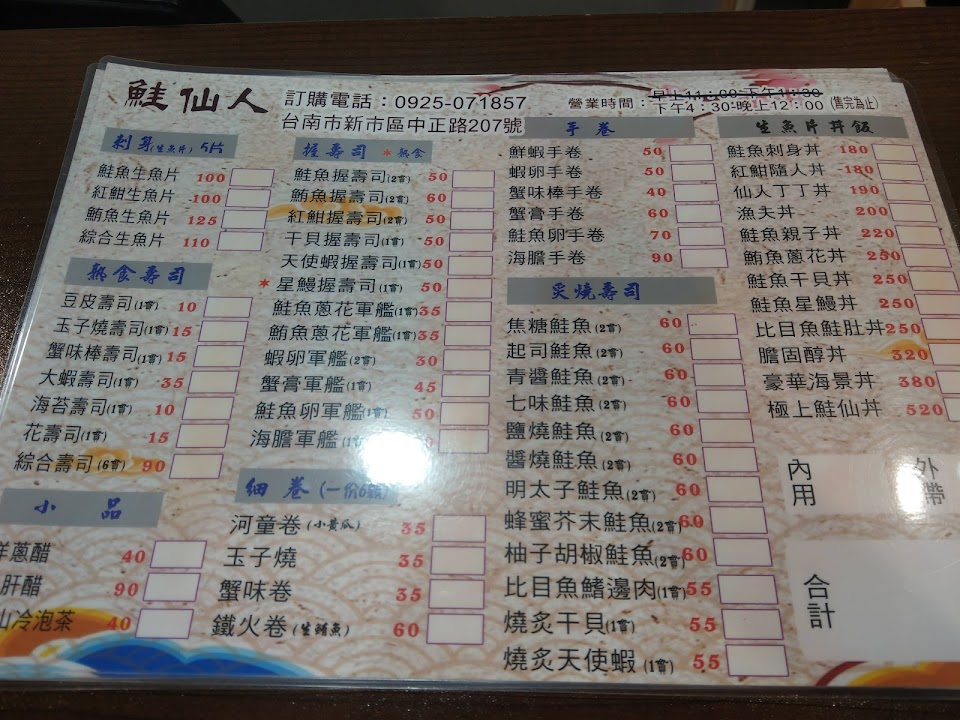 鮭仙人
訂購電話：0925-071857
台南市新市區中正路207號
營業時間：早上11：00-下午1：30
下午4：30-晚上12：00 (售完為止)
刺身(生魚片) 5片
鮭魚生魚片 100
紅魽生魚片 100
鮪魚生魚片 125
綜合生魚片 110
熟食壽司
豆皮壽司(1會) 10
玉子燒壽司(1會) 15
蟹味棒壽司(1會) 15
大蝦壽司(1會) 35
海苔壽司(1會) 10
花壽司(1會) 15
綜合壽司(6會) 90
小品
洋蔥醋 40
肝醋 90
山冷泡茶 40
握壽司 *熟食
鮭魚握壽司(2會) 50
鮪魚握壽司(2會) 60
紅魽握壽司(2會) 50
干貝握壽司(1會) 50
天使蝦握壽司(1會) 50
*星鰻握壽司(1會) 50
鮭魚蔥花軍艦(1會) 35
鮪魚蔥花軍艦(1會) 35
蝦卵軍艦(2會) 30
蟹膏軍艦(1會) 45
鮭魚卵軍艦(1會) 50
海膽軍艦
細卷(一份6顆)
河童卷(小黃瓜) 35
玉子燒 35
蟹味卷 35
鐵火卷(生鮪魚) 60
手卷
鮮蝦手卷 50
蝦卵手卷 50
蟹味棒手卷 40
蟹膏手卷 60
鮭魚卵手卷 70
海膽手卷 90
炙燒壽司
焦糖鮭魚(2會) 60
起司鮭魚(2會) 60
青醬鮭魚(2會) 60
七味鮭魚(2會) 60
鹽燒鮭魚(2會) 60
醬燒鮭魚(2會) 60
明太子鮭魚(2會) 60
蜂蜜芥末鮭魚(2會) 60
柚子胡椒鮭魚(2會) 60
比目魚鰭邊肉(1會) 55
燒炙干貝(1會) 55
燒炙天使蝦(1會) 55
生魚片丼飯
鮭魚刺身丼 180
紅魽隨人丼 180
仙人丁丁丼 190
漁夫丼 200
鮭魚親子丼 220
鮪魚蔥花丼 250
鮭魚干貝丼 250
鮭魚星鰻丼 250
比目魚鮭肚丼 250
膽固醇丼 320
豪華海景丼 380
極上鮭仙丼 520
內用
外帶
合計